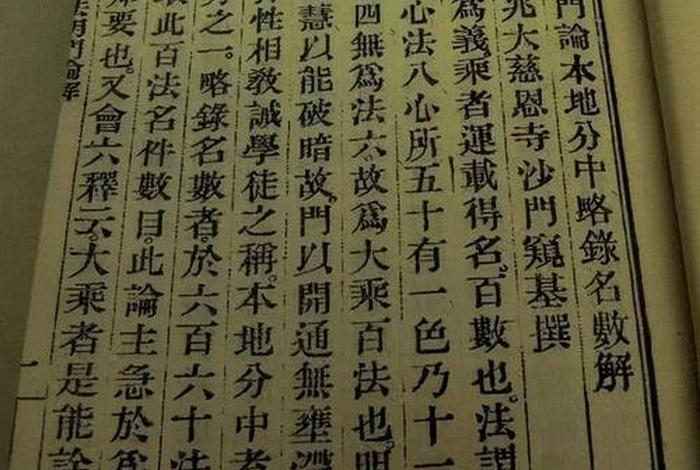 門論本地分中略錄名數解
兆大慈恩寺沙門窺基撰
爲義乘者運載得名。百數也。法謂
心法八心所五十有一色乃十一
四無爲法六。故爲大乘百法也。明
慧以能破暗故。門以開通無壅滯
性相教誡學徒之稱。本地分中者
分之一。略錄名數者。於六百六十法
此百法名件數目。此論主急於爲
要也。又會六釋云。大乘者是能詮
明門論解
二